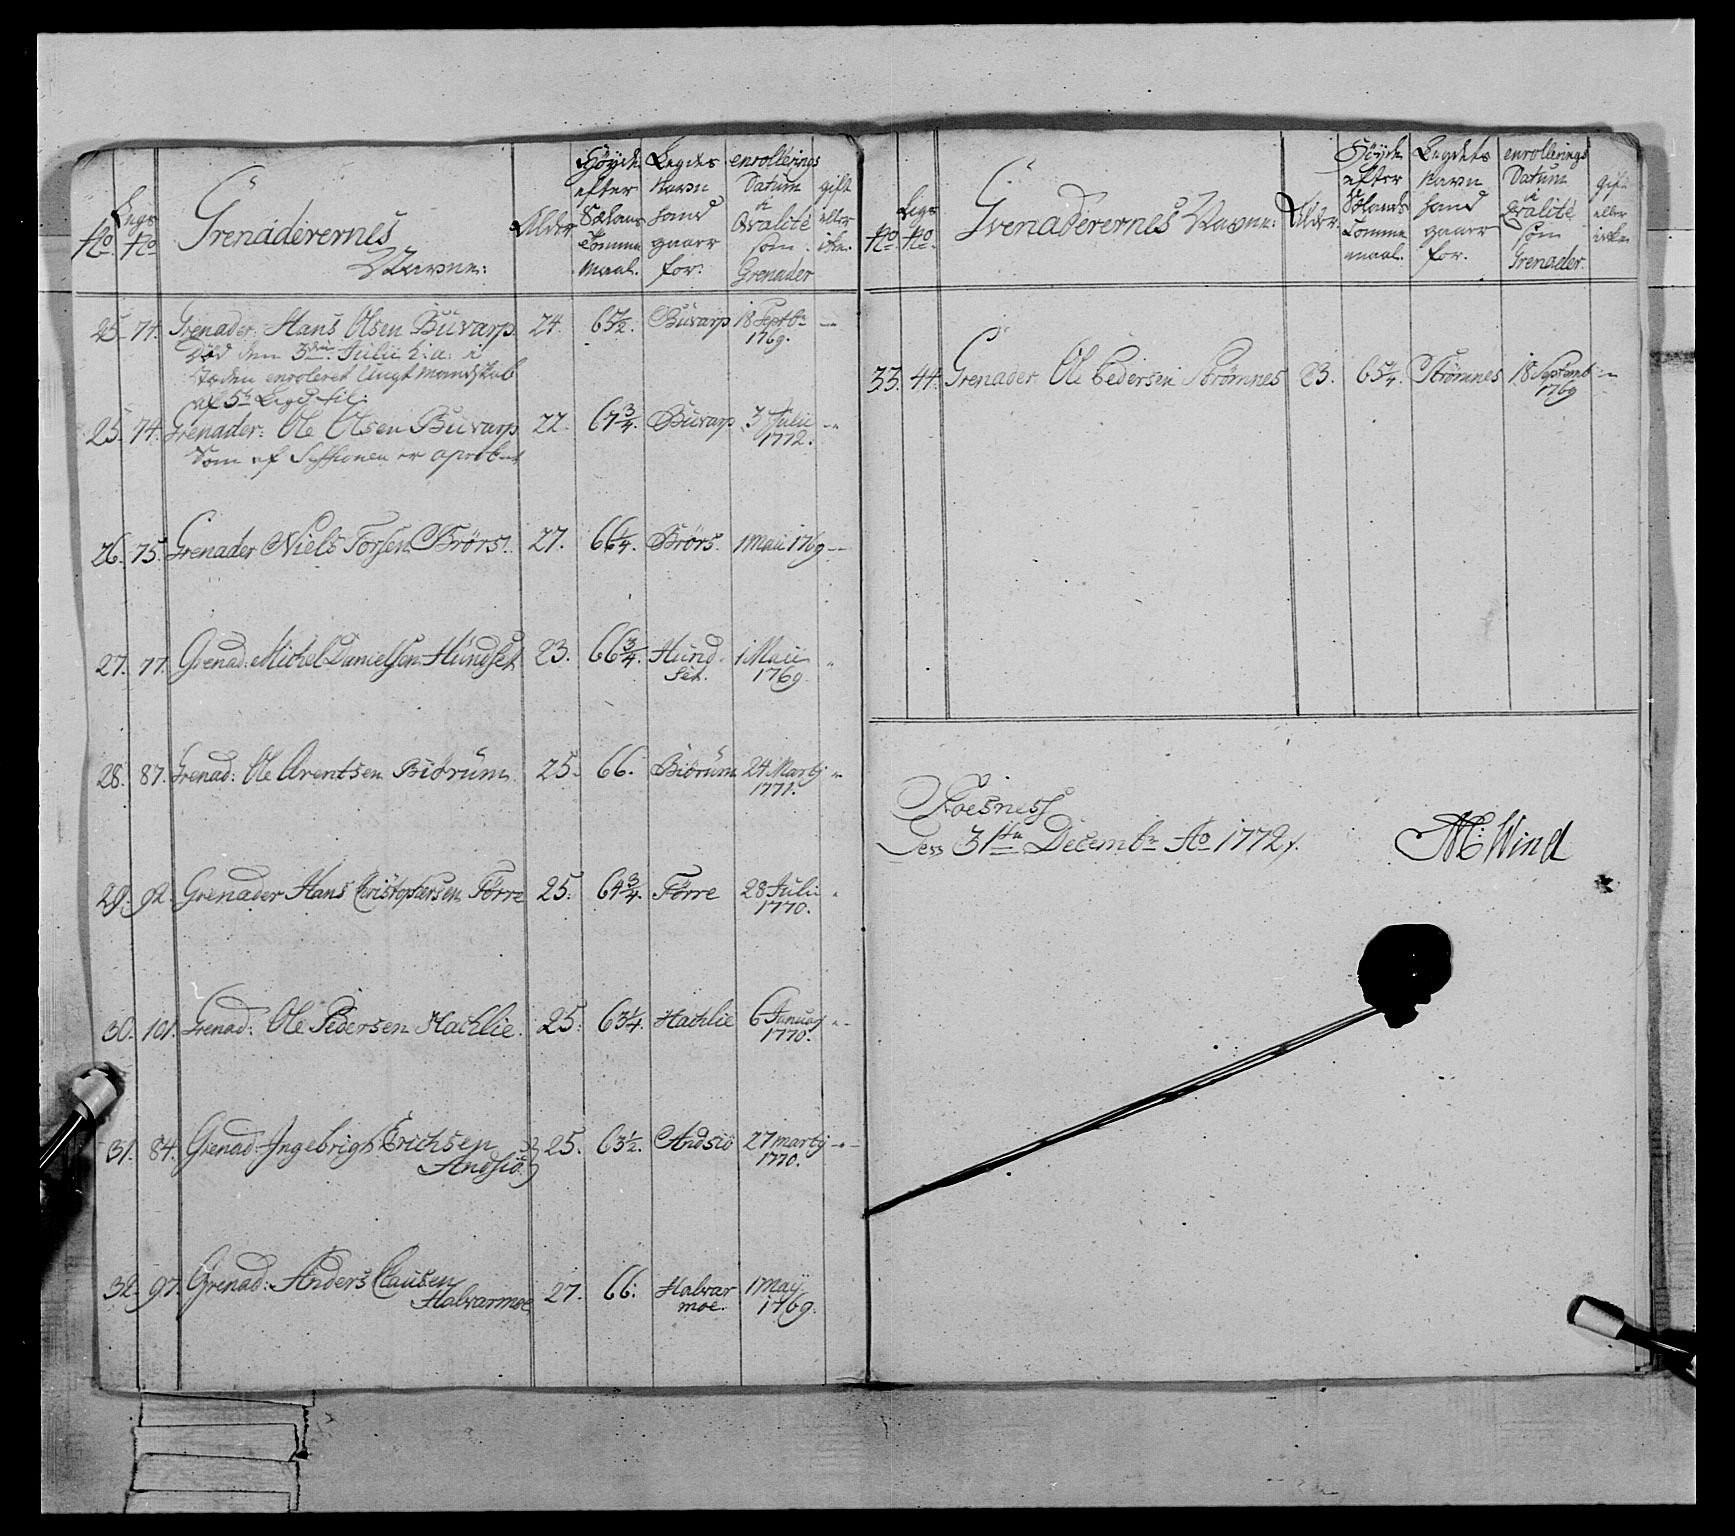 No Legs No Grenaderernes Navne: Alder Höyde efter Sælans Tomme Maal. Legdes Navn hand gaaer for. enrollerings Datum à Qvalité som Grenader gift eller ikke.
25. 74. Grenader: Hans Olsen Buvarp 24. 65 1/2. Buvarp 18 Septbr 1769. —
Död den 3die Julii h: a: i
Stæden enroleret Ungt Mandskab
af 5te Legd til:
25. 74. Grenader: Ole Olsen Buvarp 22. 67 3/4. Buvarp 3 Julii 1772. — "
Som af Sessionen er aprobert
26. 75. Grenader Niels Torsen Brörs. 27. 66 1/4. Brörs. 1 Maii 1769 —
27. 77. Grenad: Michel Danielsen Hundset 23. 66 3/4. Hund-
set. 1 Maii 1769. "
28. 87. Grenad: Ole Arentsen Biörum 25. 66. Biörum 24 Martij 1771. "
29. 92. Grenader Hans Christophersen Förre 25: 64 3/4. Förre 28 Julii 1770. "
30. 101. Grenad: Ole Pedersen Hachlie. 25: 63 1/4. Hachlie 6 Januarj 1770. "
31. 84. Grenad: Ingebrigt Erichsen
Andsiö 25. 63 1/2. Andsiö 27 martij 1770. "
32. 97. Grenad: Anders Clausen
Halvarmoe 27. 66. Halvar
moe. 1 Maij 1769.
No Legs No. Grenaderernes Navne: Alder. Höyde efter Sælands Tomme maal. Legdets Navn hand gaaer for. enrollerings Datum à Qvalité som Grenader. Gift eller icke
33. 44. Grenader Ole Pedersen Strömnes 23. 65 1/4. Strömnes 18 Septemb: 1769 "
Foesness
Den 31te Decembr Ao 1772.
M: Wind